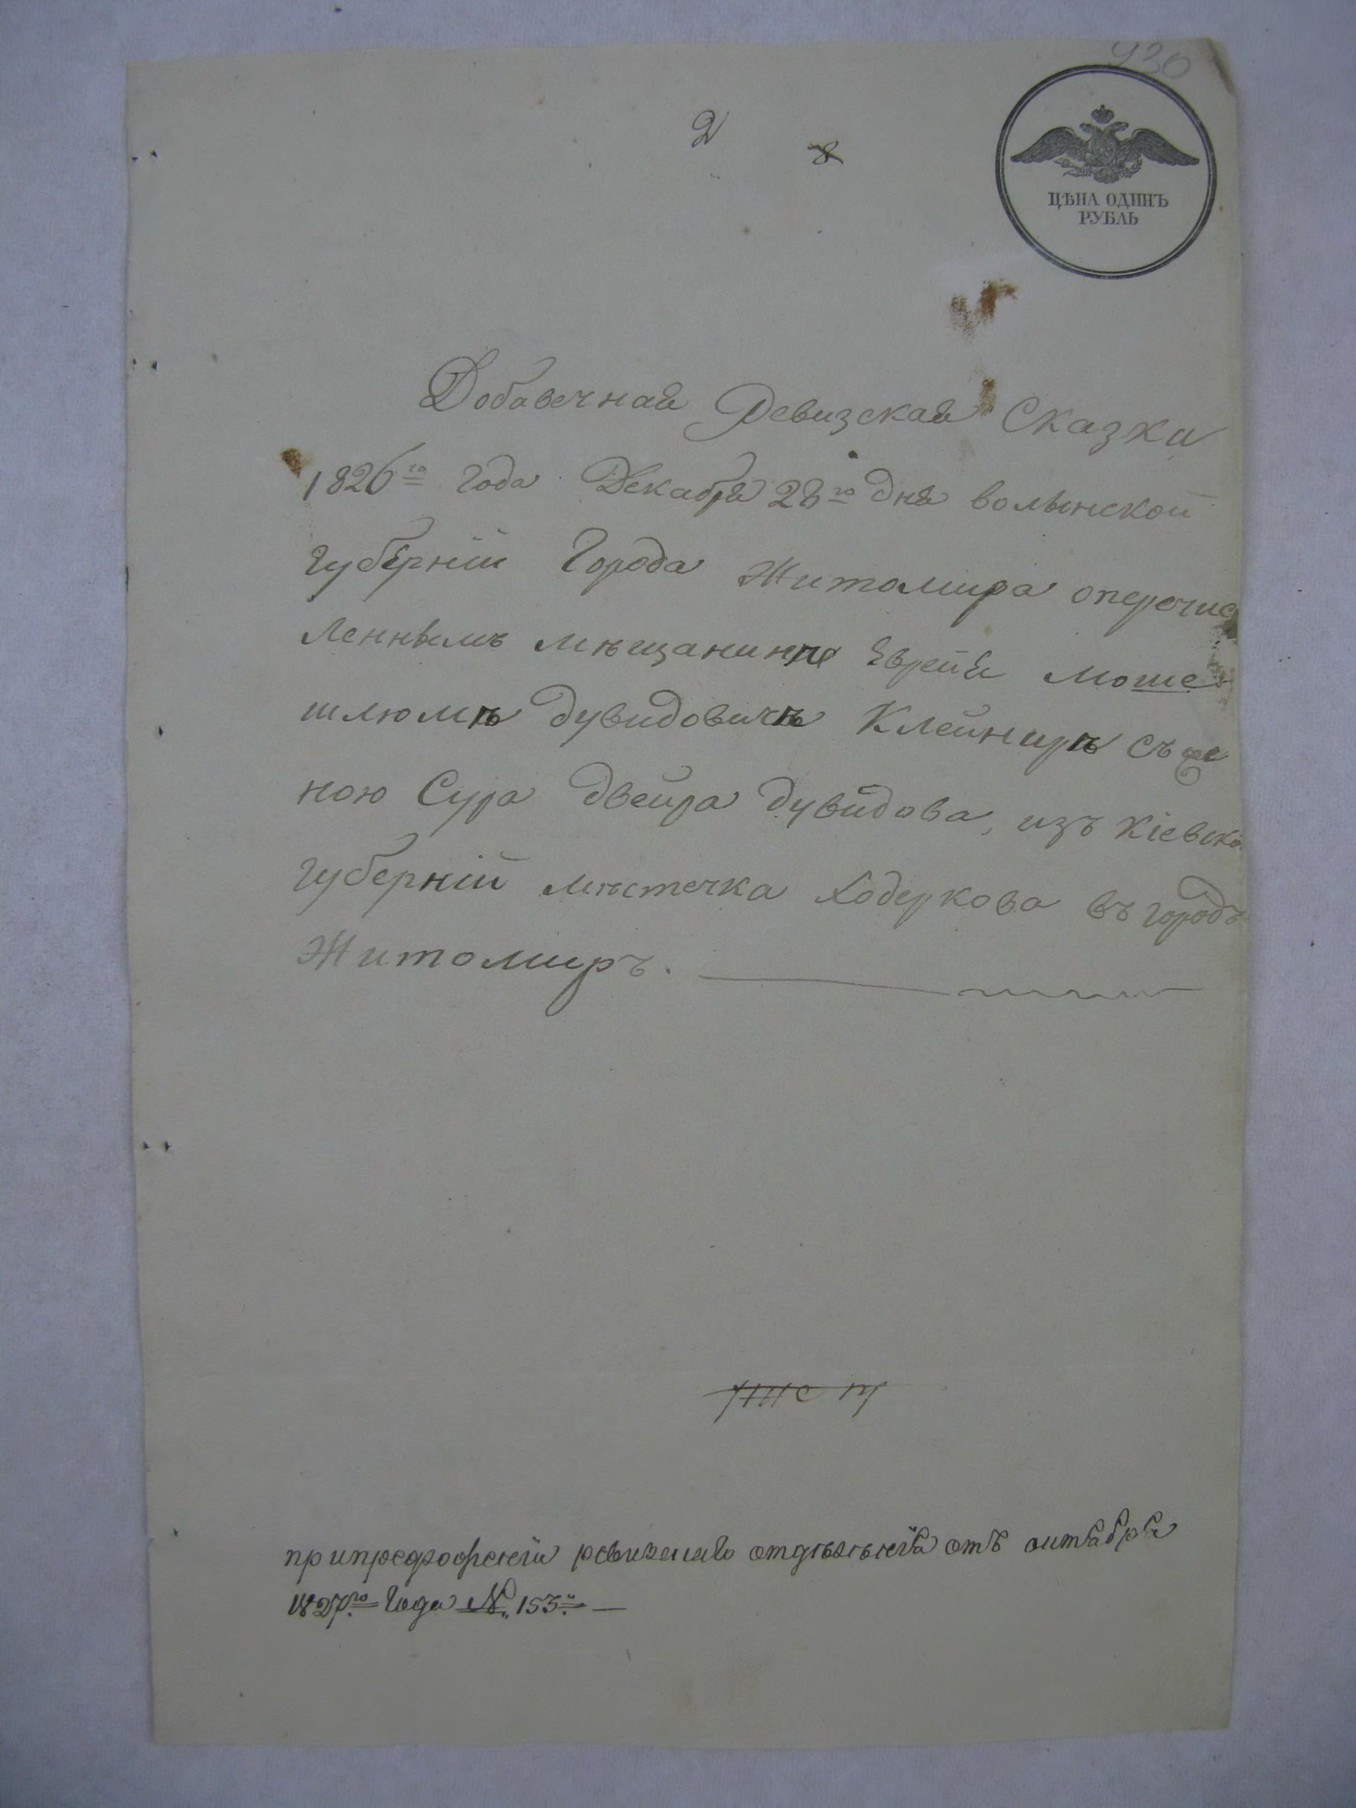 930
2 8
ЦѢНА ОДИНЪ
РУБЛЬ
Добавечная Ревизская Сказки
1826го года Декабря 28го дня волынской
губерніи Города Житомира оперечис
леннымъ мѣщанинѣ Еврейя Моше
шлюмѣ дувидовичѣ Клейнирѣ съ же
ною Сура двейра дувидова, изъ Кіевской
губерніи мѣстечка Ходеркова въ городъ
Житомиръ.
при предложеніи ревизскаго отдѣленія отъ октября
1827го года №. 153.